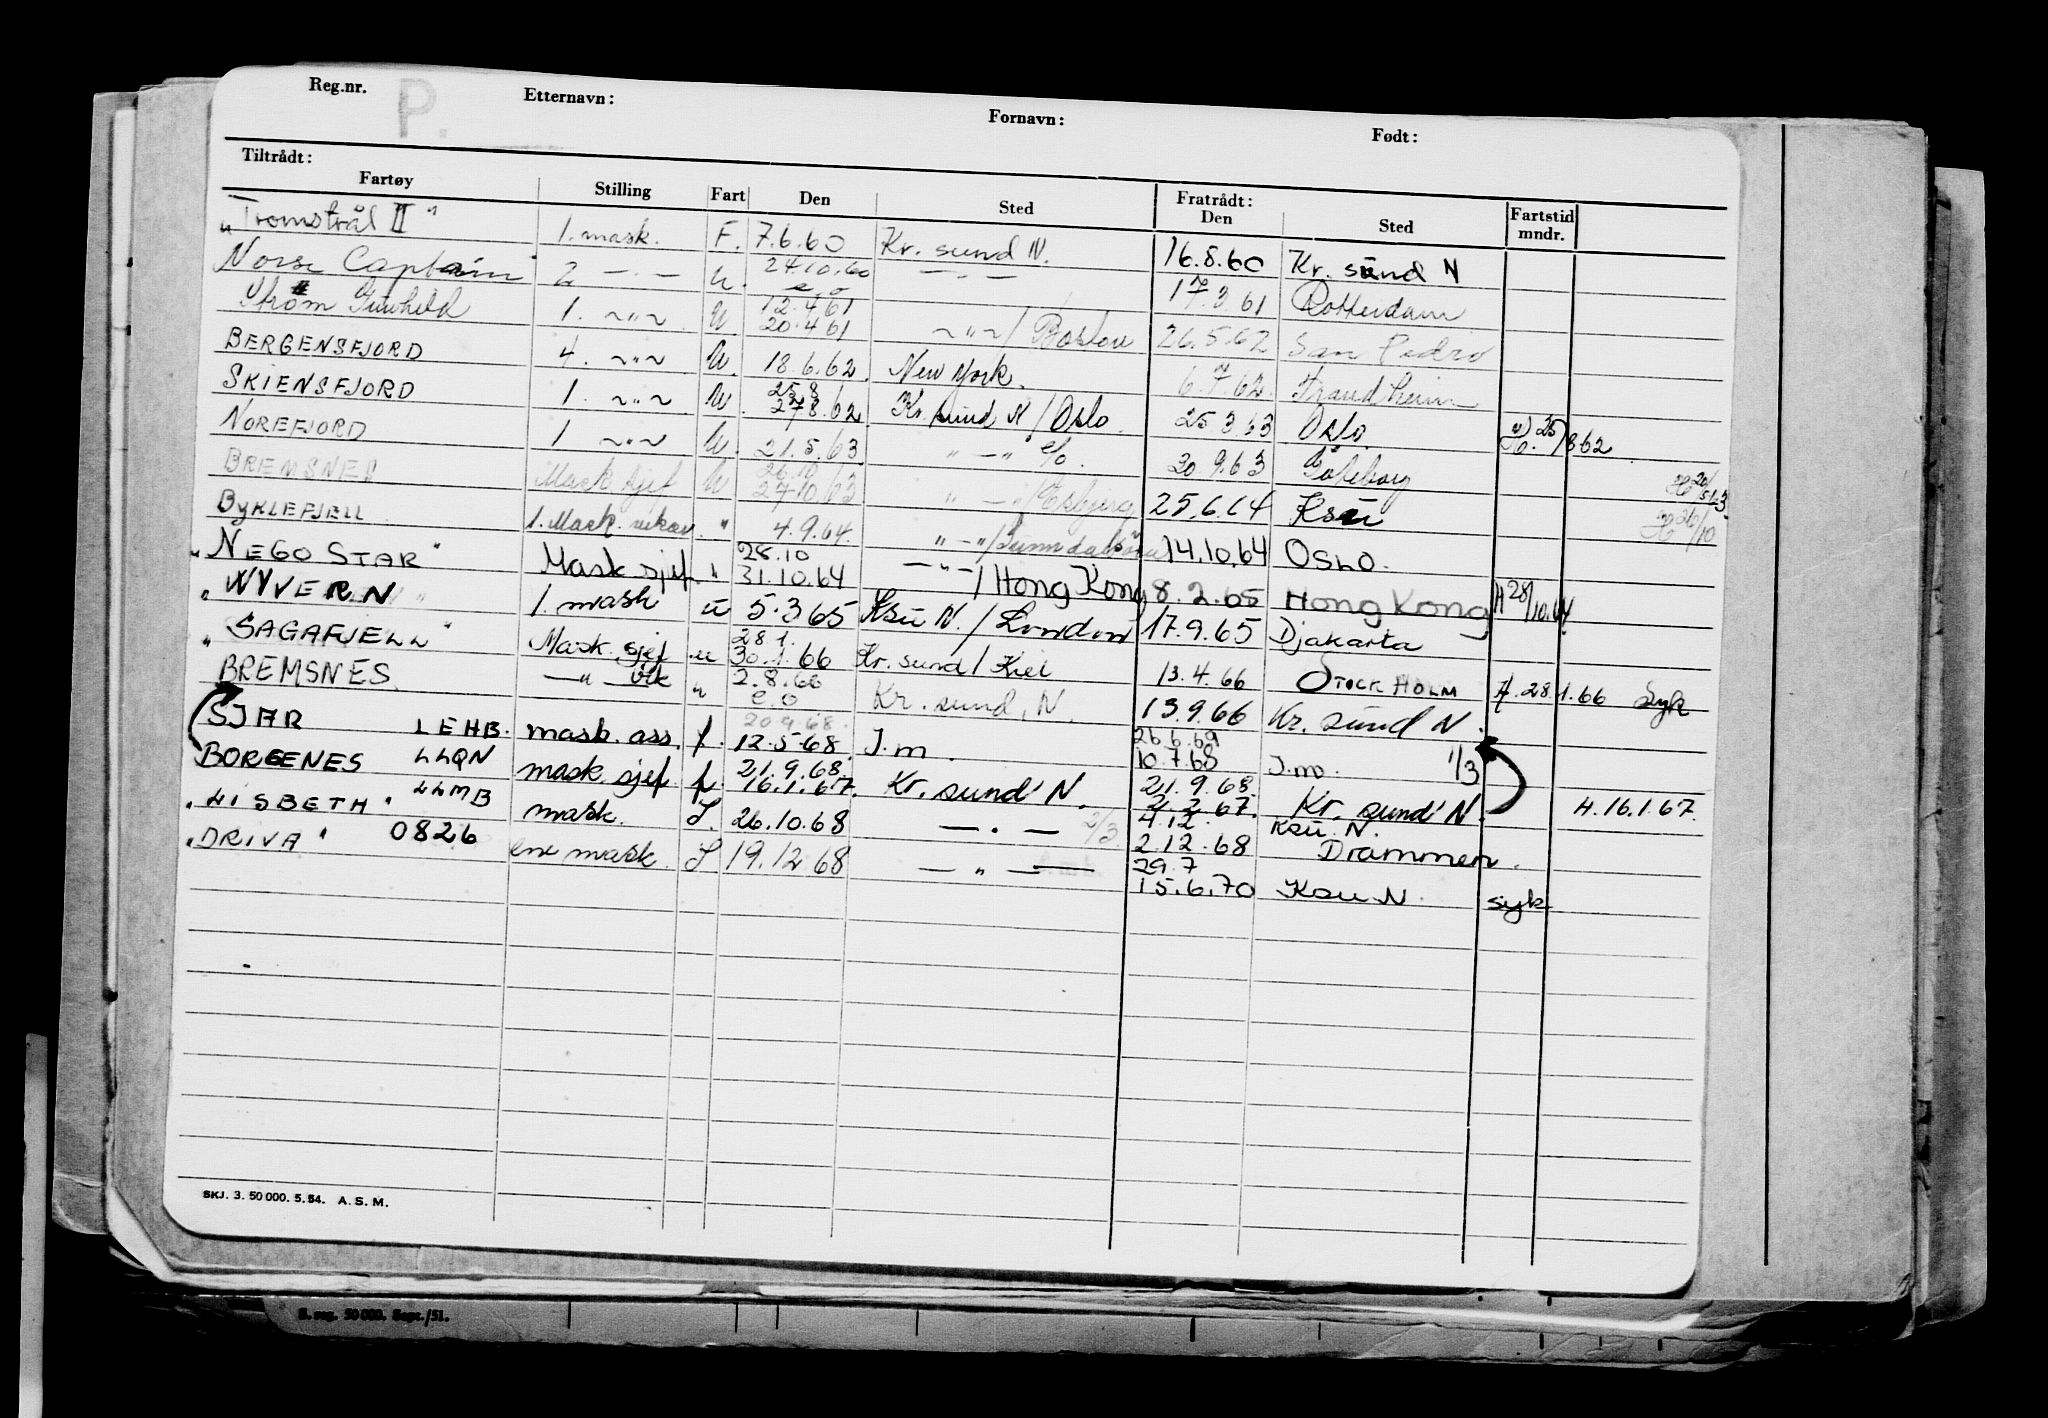 Reg.nr. P. Etternavn: Fornavn: Født:
Tiltrådt: Fratrådt:
Fartøy Stilling Fart Den Sted Den Sted Fartstid mndr.
"Tromstrål II" 1. mask. F. 7.6.60 Kr. sund N. 16.8.60 Kr. sund N
Norse Captain 2 —"— u. 24.10.60 —"— 17.3.61 Rotterdam
e.o
Strøm Gunhild 1. ~"~ u 12.4.61 20.4.61 ~"~/Boston 26.5.62 San Pedro
BERGENSFJORD 4. ~"~ u. 18.6.62. New York. 6.7.62. Trondheim
SKIENSFJORD 1. ~"~ u. 25.8 27.8.62 Kr. sund N/Oslo. 25.3.63 Oslo 25/8 62
NOREFJORD 1 ~"~ u 21.5.63 " —" e/o. 30.9.63 Göteborg
BREMSNES Mask sjef u 26.10 27.10.63 " —"/Esbjerg 25.6.64 Ksu
BYKLEFJELL 1. Mask. vikar " 4.9.64. " —"/Sunndalsöra 14.10.64 OSLO. 26/10
"NEGO STAR" Mask sjef " 28.10 31.10.64 —"—/Hong Kong 8.2.65 Hong Kong H 28/10.64
"WYVERN" 1. mask u 5.3.65 Ksu N./London 17.9.65 Djakarta
"SAGAFJELL" Mask. sjef u 28.1. 30.1.66 Kr. sund/Kiel 13.4.66 STOCKHOLM H. 28.1.66 Syk
BREMSNES. —"— vik " 2.8.66 e.o Kr. sund, N. 13.9.66 Kr. sund N.
SJAR LEHB. mask. ass. f. 20.9.68. 12.5.68 J.m. 26.6.69 10.7.68 J.m. 1/3
BORGENES LLQN mask. sjef. f. 21.9.68. 16.1.67. Kr. sund N. 21.9.68. 2.2.67. Kr. sund N. H.16.1.67.
"LISBETH" LLMB mask. S. 26.10.68 —"— 2/3. 4.12. 2.12.68 Ksu. N. Drammen.
"DRIVA" 0826 ene mask. S 19.12.68 —"— 29.7 15.6.70 Ksu N. syk
SKJ. 3. 50 000. 5. 54. A. S. M.
S. reg. 50 000. Sept./51.